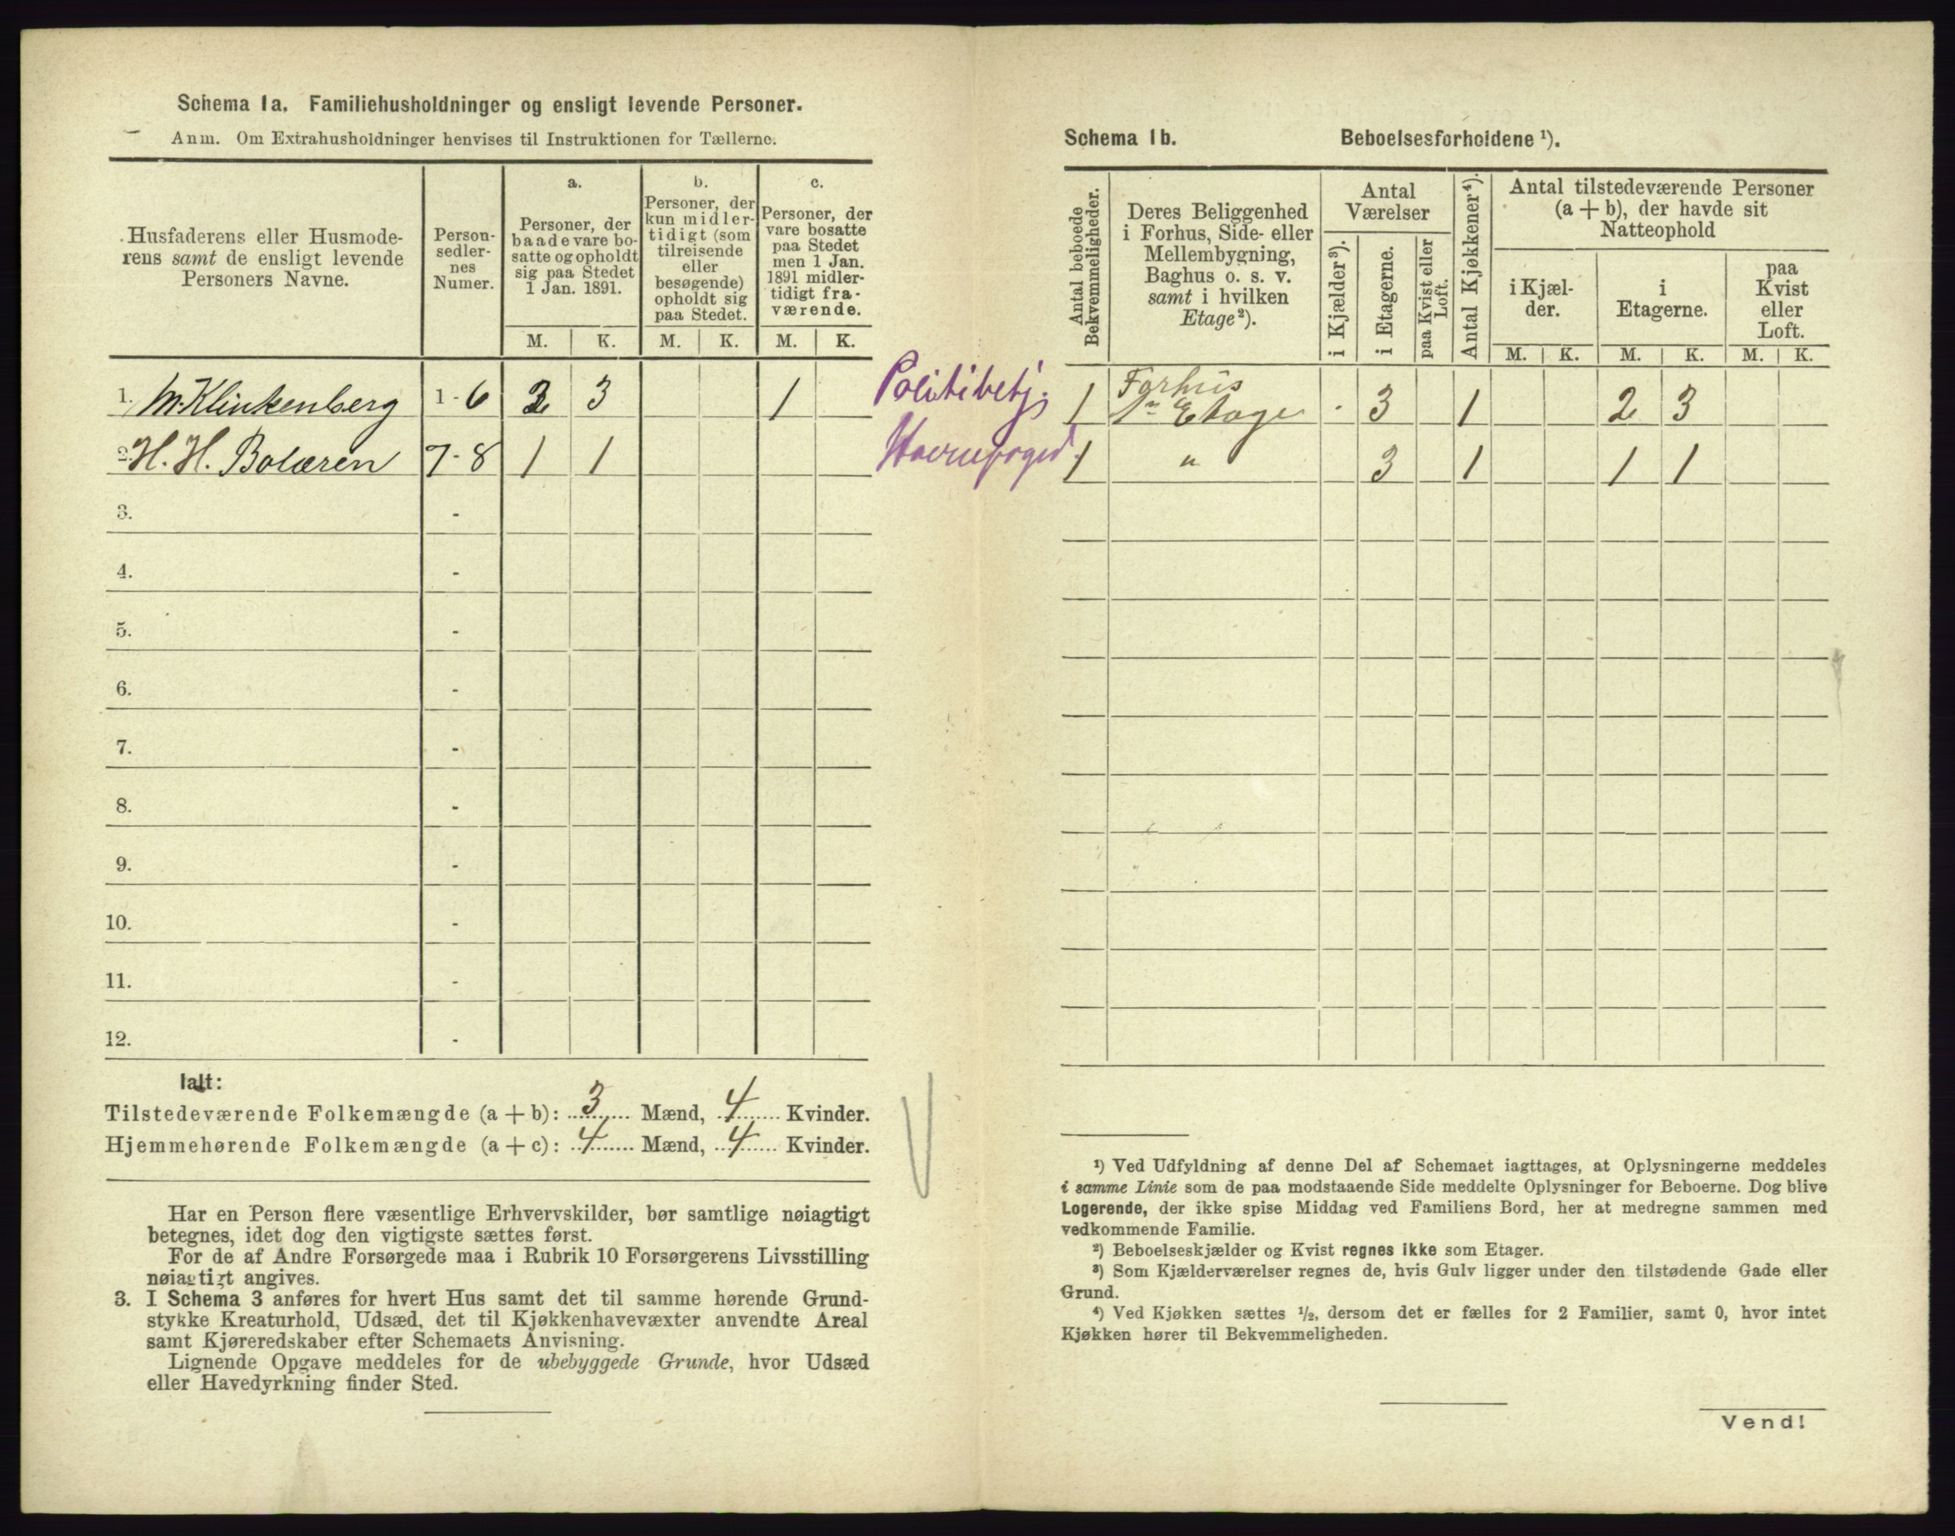 Schema 1a. Familiehusholdninger og ensligt levende Personer.
Anm. Om Extrahusholdninger henvises til Instruktionen for Tællerne.
Husfaderens eller Husmode-
rens samt de ensligt levende
Personers Navne.
Person-
sedler-
nes
Numer.
a.
Personer, der
baade vare bo-
satte og opholdt
sig paa Stedet
1 Jan. 1891.
b.
Personer, der
kun midler-
tidigt (som
tilreisende
eller
besøgende)
opholdt sig
paa Stedet.
c.
Personer, der
vare bosatte
paa Stedet
men 1 Jan.
1891 midler-
tidigt fra-
værende.
M. K. M. K. M. K.
1. M. Klinkenberg 1-6 2 3 1
2. H. H. Bolæren 7-8 1 1
3. -
4. -
5. -
6. -
7. -
8. -
9. -
10. -
11. -
12. -
Ialt:
Tilstedeværende Folkemængde (a + b): 3 Mænd, 4 Kvinder.
Hjemmehørende Folkemængde (a + c): 4 Mænd, 4 Kvinder.
Har en Person flere væsentlige Erhvervskilder, bør samtlige nøiagtigt
betegnes, idet dog den vigtigste sættes først.
For de af Andre Forsørgede maa i Rubrik 10 Forsørgerens Livsstilling
nøiagtigt angives.
3. I Schema 3 anføres for hvert Hus samt det til samme hørende Grund-
stykke Kreaturhold, Udsæd, det til Kjøkkenhavevæxter anvendte Areal
samt Kjøreredskaber efter Schemaets Anvisning.
Lignende Opgave meddeles for de ubebyggede Grunde, hvor Udsæd
eller Havedyrkning finder Sted.
Politibetj.
Havnefoged.
Schema 1b. Beboelsesforholdene ¹).
Antal beboede
Bekvemmeligheder.
Deres Beliggenhed
i Forhus, Side- eller
Mellembygning,
Baghus o. s. v.
samt i hvilken
Etage²).
Antal
Værelser
i Kjælder³).
i Etagerne.
paa Kvist eller
Loft.
Antal Kjøkkener⁴).
Antal tilstedeværende Personer
(a + b), der havde sit
Natteophold
i Kjæl-
der.
i
Etagerne.
paa
Kvist
eller
Loft.
M. K. M. K. M. K.
1 Forhus
1n Etage · 3 1 2 3
1 " 3 1 1 1
¹) Ved Udfyldning af denne Del af Schemaet iagttages, at Oplysningerne meddeles
i samme Linie som de paa modstaaende Side meddelte Oplysninger for Beboerne. Dog blive
Logerende, der ikke spise Middag ved Familiens Bord, her at medregne sammen med
vedkommende Familie.
²) Beboelseskjælder og Kvist regnes ikke som Etager.
³) Som Kjælderværelser regnes de, hvis Gulv ligger under den tilstødende Gade eller
Grund.
⁴) Ved Kjøkken sættes ½, dersom det er fælles for 2 Familier, samt 0, hvor intet
Kjøkken hører til Bekvemmeligheden.
Vend!